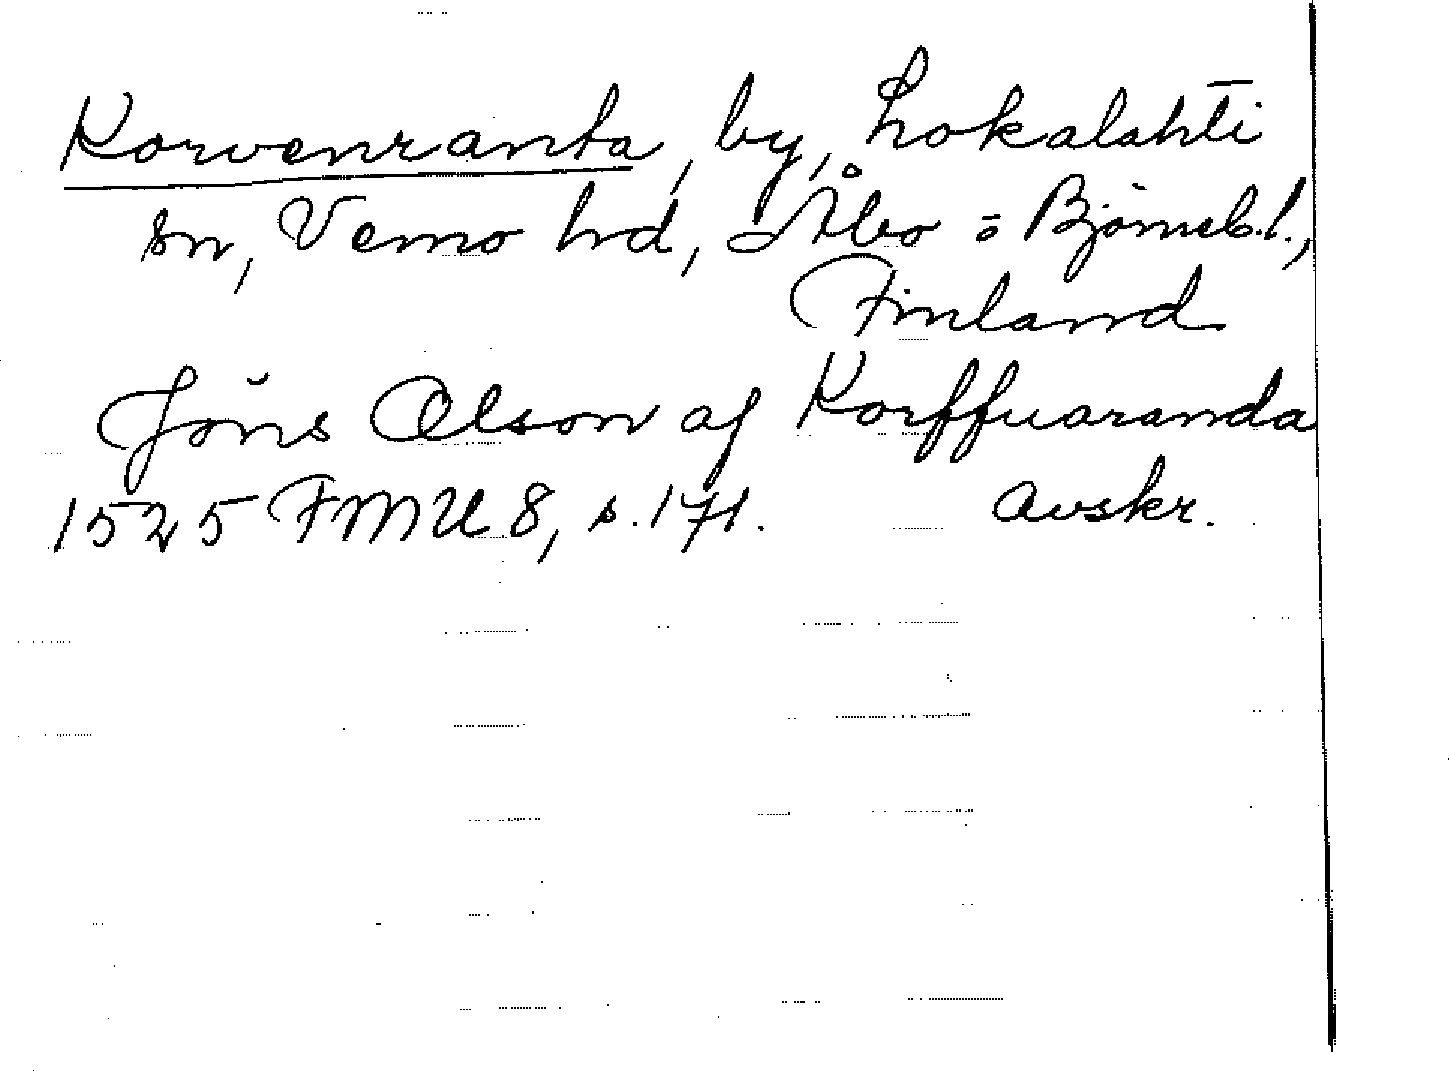 Korvenranta, by, Lokalahti
sn, Vemo hd, Åbo = Björneb.l.,
Finland
Jöns Olson af Korffuaranda
1525 FMU 8, s. 171. avskr.